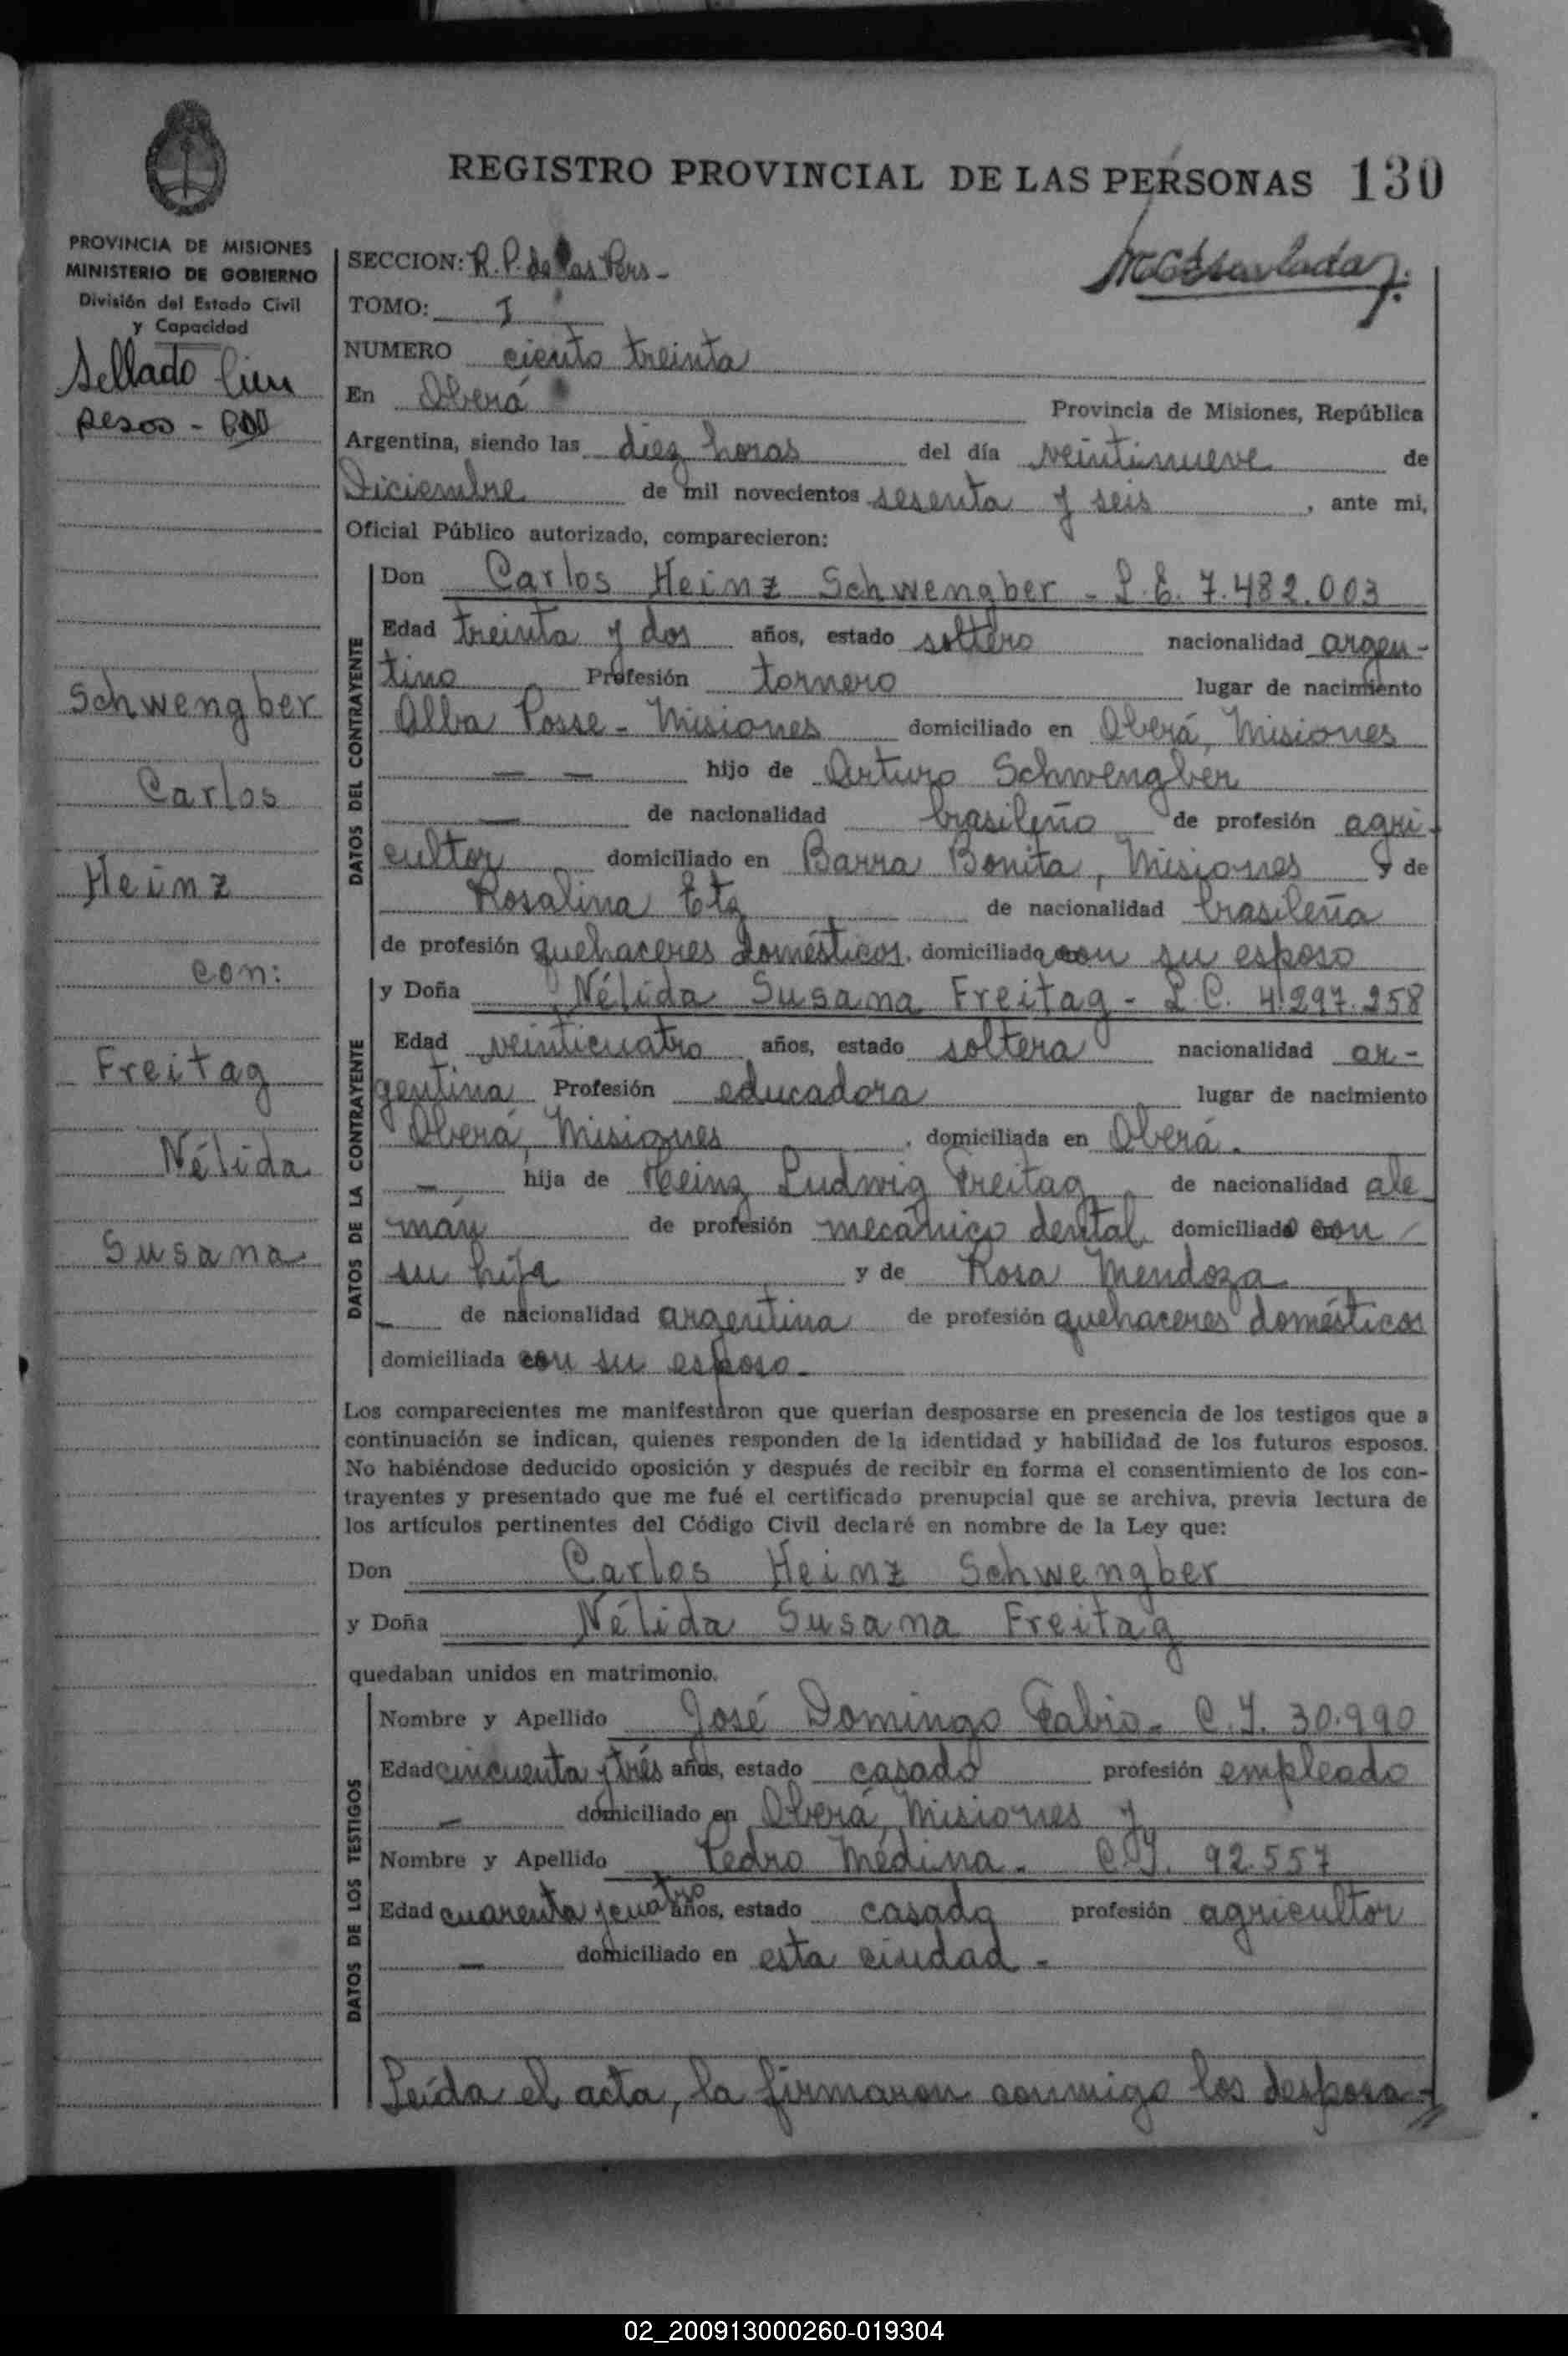 REGISTRO PROVINCIAL DE LAS PERSONAS 130
PROVINCIA DE MISIONES
MINISTERIO DE GOBIERNO
División del Estado Civil
y Capacidad
Sellado cien
pesos -
Schwengber
Carlos
Heinz
con:
Freitag
Nélida
Susana
SECCION: R. P. de las Pers-
TOMO: I
NUMERO ciento treinta
En Oberá Provincia de Misiones, República
Argentina, siendo las diez horas del día veintinueve de
Diciembre de mil novecientos sesenta y seis, ante mi,
Oficial Público autorizado, comparecieron:
DATOS DEL CONTRAYENTE
Don Carlos Heinz Schwengber - L.E. 7.482.003
Edad treinta y dos años, estado soltero nacionalidad argen-
tino Profesión tornero lugar de nacimiento
Alba Posse - Misiones domiciliado en Oberá, Misiones
— — hijo de Arturo Schwengber
— de nacionalidad brasileño de profesión agri-
cultor domiciliado en Barra Bonita, Misiones y de
Rosalina Etz de nacionalidad brasileña
de profesión quehaceres domésticos. domiciliado con su esposo
DATOS DE LA CONTRAYENTE
y Doña Nélida Susana Freitag - L.C. 4.297.258
Edad veinticuatro años, estado soltera nacionalidad ar-
gentina Profesión educadora lugar de nacimiento
Oberá, Misiones, domiciliada en Oberá.
— hija de Heinz Ludwig Freitag de nacionalidad ale
mán de profesión mecánico dental domiciliado con
su hija y de Rosa Mendoza
— de nacionalidad argentina de profesión quehaceres domésticos
domiciliada con su esposo -
Los comparecientes me manifestaron que querían desposarse en presencia de los testigos que a
continuación se indican, quienes responden de la identidad y habilidad de los futuros esposos.
No habiéndose deducido oposición y después de recibir en forma el consentimiento de los con-
trayentes y presentado que me fué el certificado prenupcial que se archiva, previa lectura de
los artículos pertinentes del Código Civil declaré en nombre de la Ley que:
Don Carlos Heinz Schwengber
y Doña Nélida Susana Freitag
quedaban unidos en matrimonio.
DATOS DE LOS TESTIGOS
Nombre y Apellido José Domingo Fabio - C.I. 30.990
Edad cincuenta y trés años, estado casado profesión empleado
— domiciliado en Oberá, Misiones y
Nombre y Apellido Pedro Médina - C.I. 92.557
Edad cuarenta y cuatro años, estado casado profesión agricultor
— domiciliado en esta ciudad -
Leída el acta, la firmaron conmigo los desposa-
02_200913000260-019304